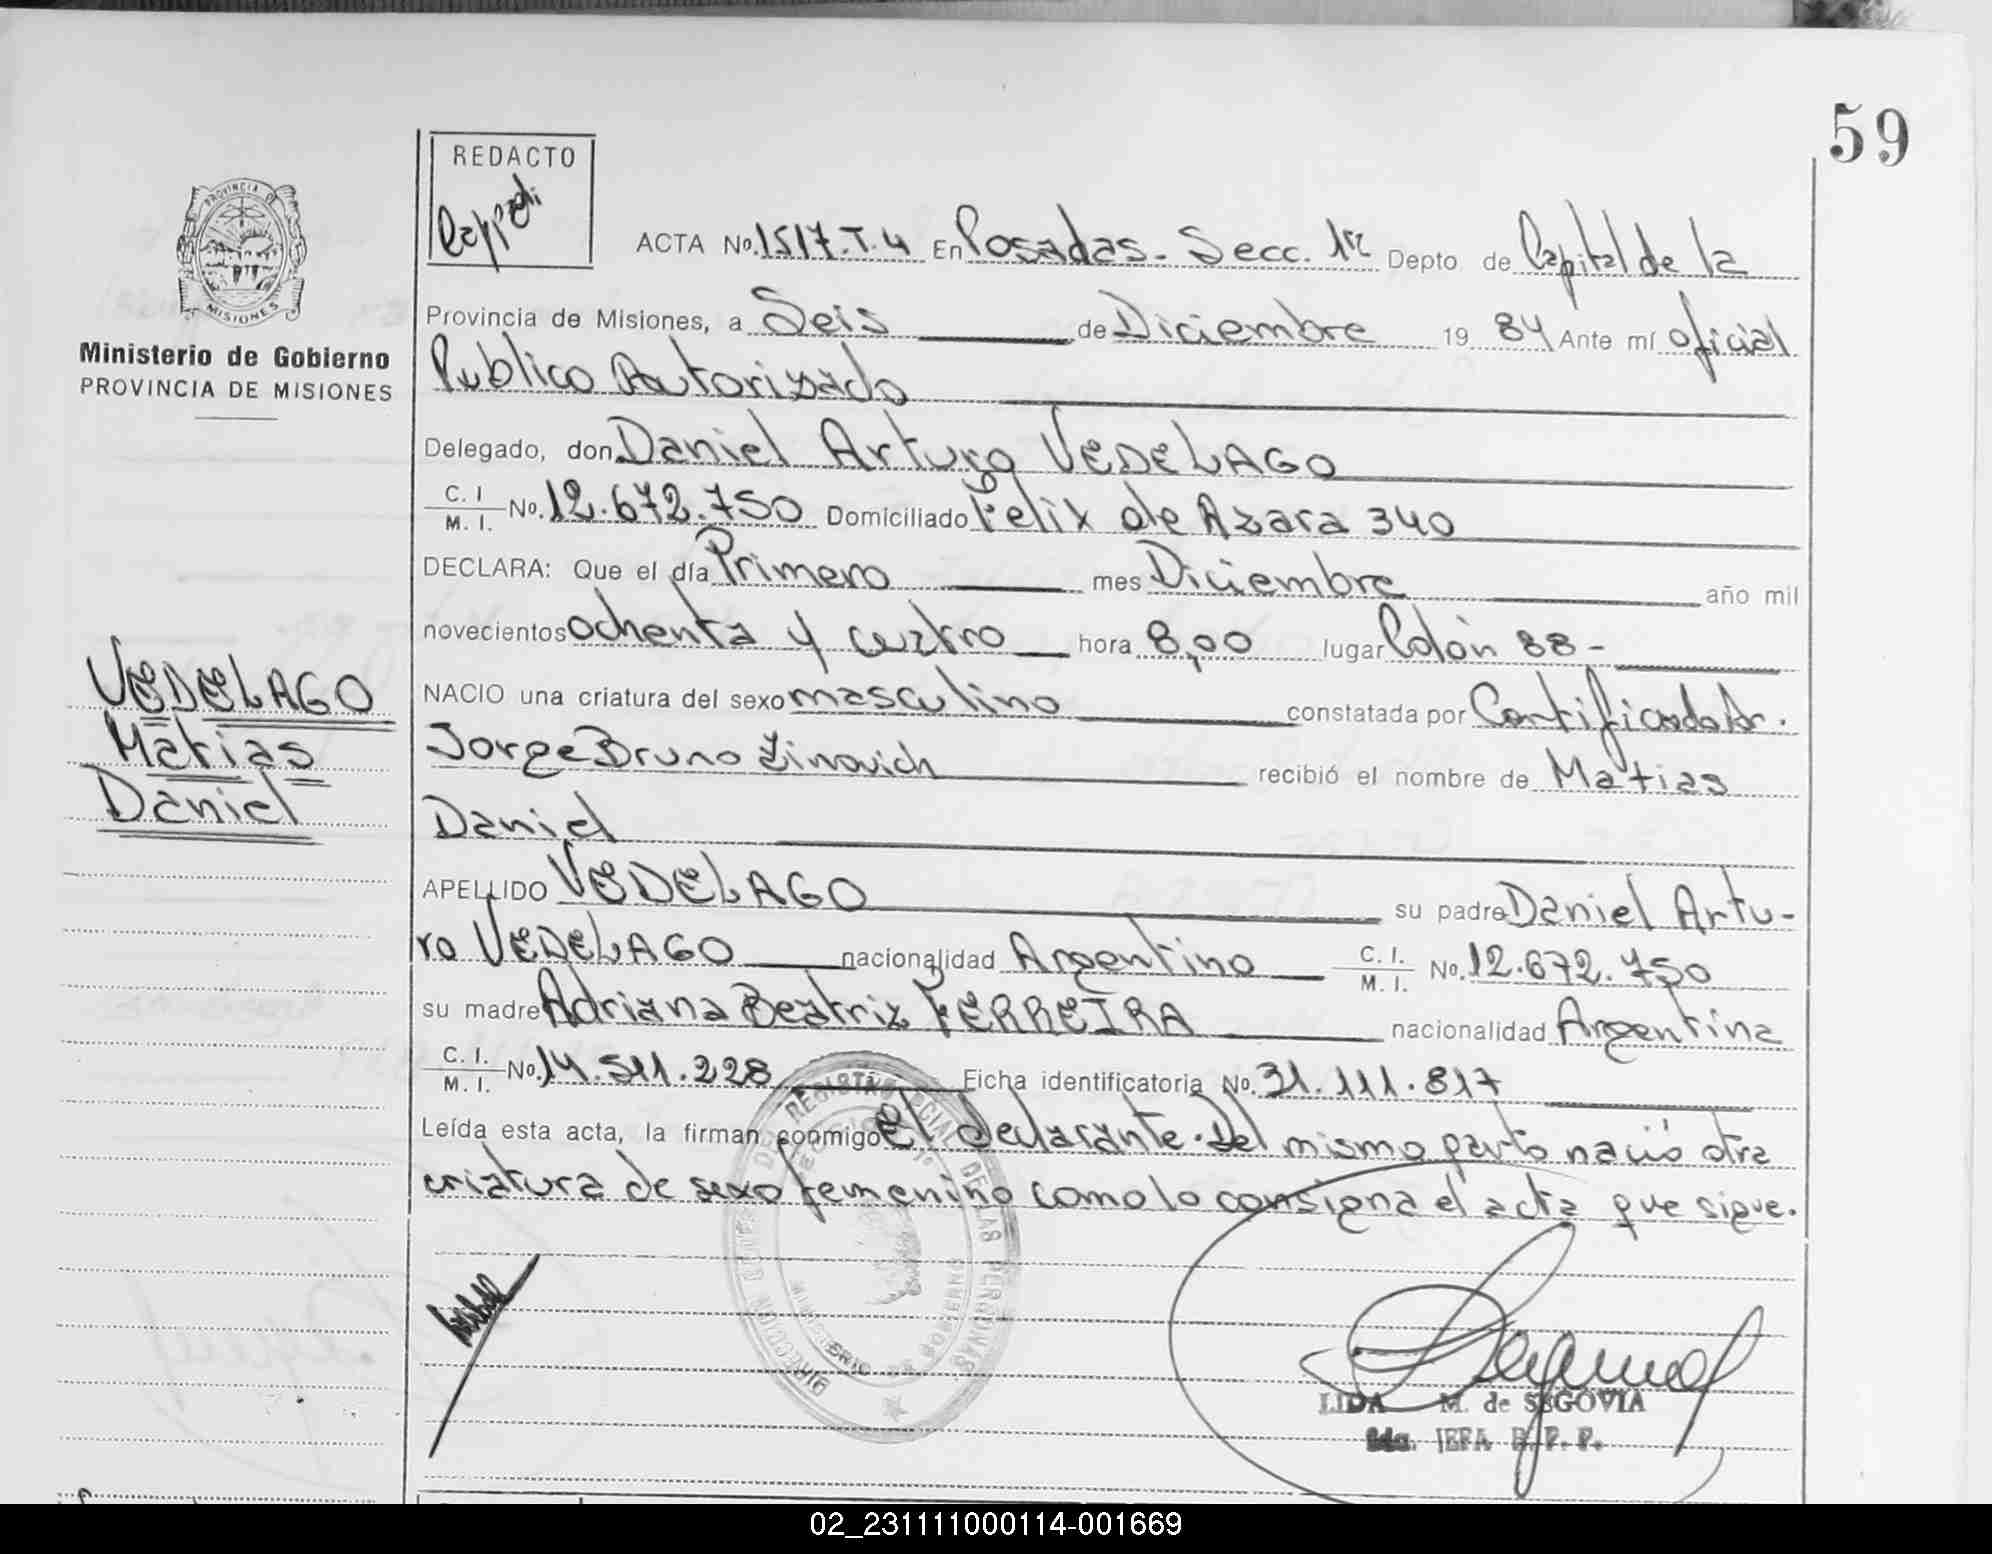 59
REDACTO
PROVINCIA DE
MISIONES
Ministerio de Gobierno
PROVINCIA DE MISIONES
ACTA No. 1517.T.4 En Posadas. Secc. 1ra Depto de Capital de la
Provincia de Misiones, a Seis de Diciembre 19 84 Ante mí oficial
Publico Autorizado
Delegado, don Daniel Arturo VEDELAGO
C. I. M. I. No. 12.672.750 Domiciliado Felix de Azara 340
DECLARA: Que el día Primero mes Diciembre año mil
novecientos ochenta y cuatro hora 8,00 lugar Colón 88-
VEDELAGO
Matias
Daniel
NACIO una criatura del sexo masculino constatada por Certificado Dr.
Jorge Bruno Zinovich recibió el nombre de Matias
Daniel
APELLIDO VEDELAGO su padre Daniel Artu-
ro VEDELAGO nacionalidad Argentino C. I. M. I. No. 12.672.750
su madre Adriana Beatriz FERREIRA nacionalidad Argentina
C. I. M. I. No. 14.511.228 Ficha identificatoria No. 31.111.817
Leída esta acta, la firman conmigo el declarante. Del mismo parto nació otra
criatura de sexo femenino como lo consigna el acta que sigue.
LIDA M. de SEGOVIA
JEFA
02_231111000114-001669